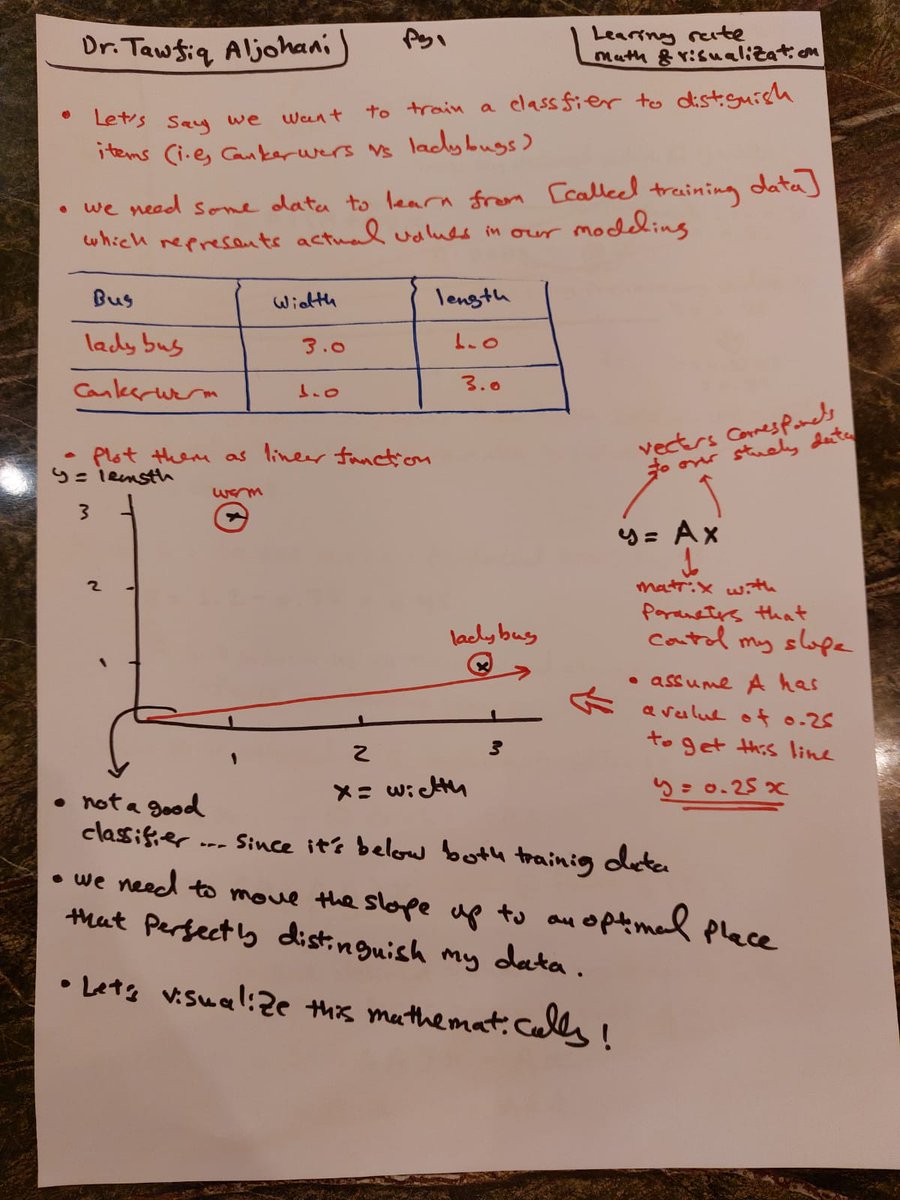 Dr. Tawfiq Aljohani
Pg1
Learing rate
math & visualization
• Let's say we want to train a classfier to distiguish
items (i.e, Cankerwers vs ladybugs)
• we need some data to learn from [called training data]
which represents actual values in our modeling
Bug width length
ladybug 3.0 1.0
Cankerworm 1.0 3.0
• Plot them as linear function
y = length
worm
3
2
1
ladybug
1 2 3
x = width
vectors corresponds
to our study data
y = A x
matrix with
Parameters that
control my slope
• assume A has
a value of 0.25
to get this line
y = 0.25 x
• not a good
classifier ... since it's below both trainig data
• we need to move the slope up to an optimal place
that Perfectly distinguish my data.
• Let's visualize this mathematically!